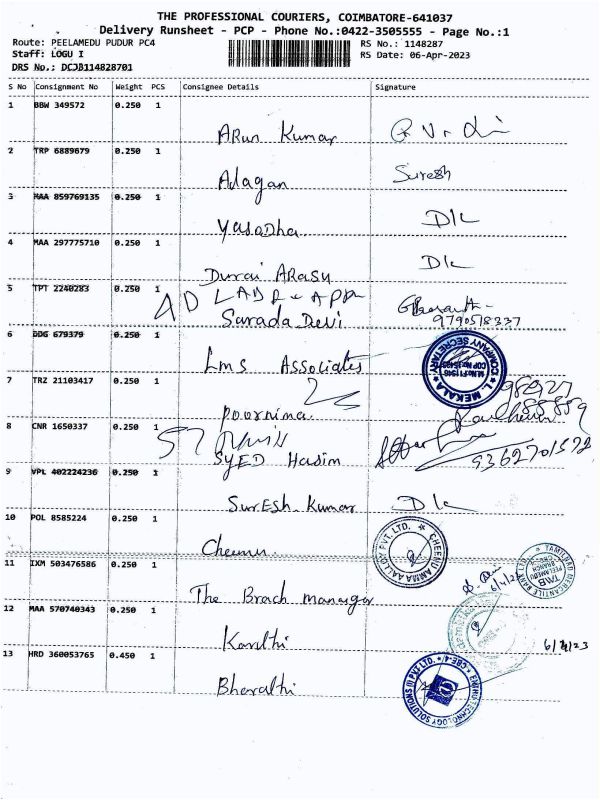 THE PROFESSIONAL COURIERS, COIMBATORE-641037
Delivery Runsheet - PCP - Phone No.:0422-3505555 - Page No.:1
Route: PEELAMEDU PUDUR PC4
RS No.: 1148287
Staff: LOGU I
RS Date: 06-Apr-2023
DRS No.: DCJB114828701
S No Consignment No Weight PCS Consignee Details Signature
1 BBW 349572 0.250 1
Arun Kumar
2 TRP 6889679 0.250 1
Adagan Suresh
3 MAA 859769135 0.250 1
Yasodha D/L
4 MAA 297775710 0.250 1
Durai ARasu D/L
5 TPT 2240283 0.250 1
Sarada Devi 9790518337
6 DDG 679379 0.250 1
Lms Associates
L. MEKALA
COMPANY SECRETARY
7 TRZ 21103417 0.250 1
Poornima
8 CNR 1650337 0.250 1
SYED Hasim 9362701572
9 VPL 402224236 0.250 1
SurEsh Kumar D/L
10 POL 8585224 0.250 1
Cheenu
CHEENU AMMA AALLOY PVT. LTD.
11 IXM 503476586 0.250 1
The Brach manager
TAMILNAD MERCANTILE BANK LTD.
TMB
PEELAMEDU
BRANCH
12 MAA 570740343 0.250 1
Kanthi
13 HRD 360053765 0.450 1
Bharathi
TECHNOLOGY SOLUTIONS (I) PVT LTD. CBE-4